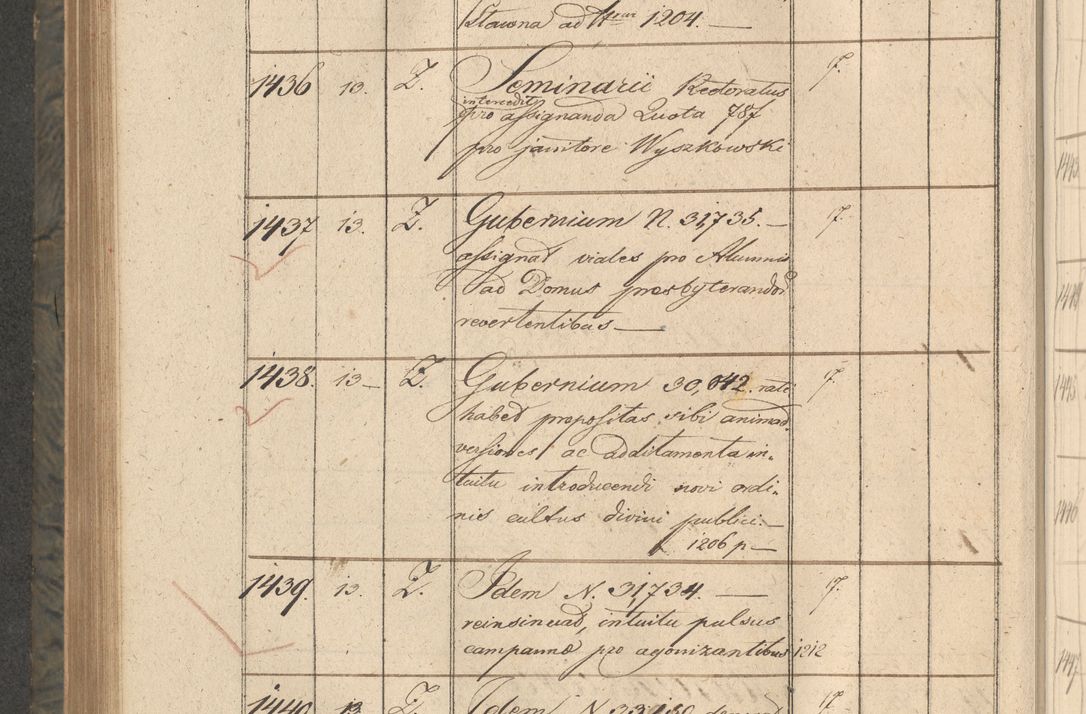 Stawna ad Nrum 1204. —
1436 10. Z. Seminarii Rectoratus 17.
intercedit
pro assignanda Quota 78f
pro janitore Wyszkowski
1437 13. Z. Gubernium N. 31,735. — 17.
assignat viales pro Alumnis
ad Domus presbyterandor
revertentibus —
1438. 13 — Z. Gubernium 30,042. rati 17.
habet propositas sibi animad
versiones ac additamenta in-
tuitu introducendi novi ordi-
nis cultus divini publici. —
1206 p —
1439. 13. Z. Idem N. 31,734. — 17.
reinsinuat, intuitu pulsus
campanæ pro agonizantibus 1212
1440 13 Z. Idem N. 17.